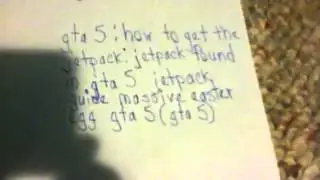 gta 5 : how to get the
jetpack: jetpack found
in gta 5 jetpack
guide massive easter
egg gta 5 (gta 5)